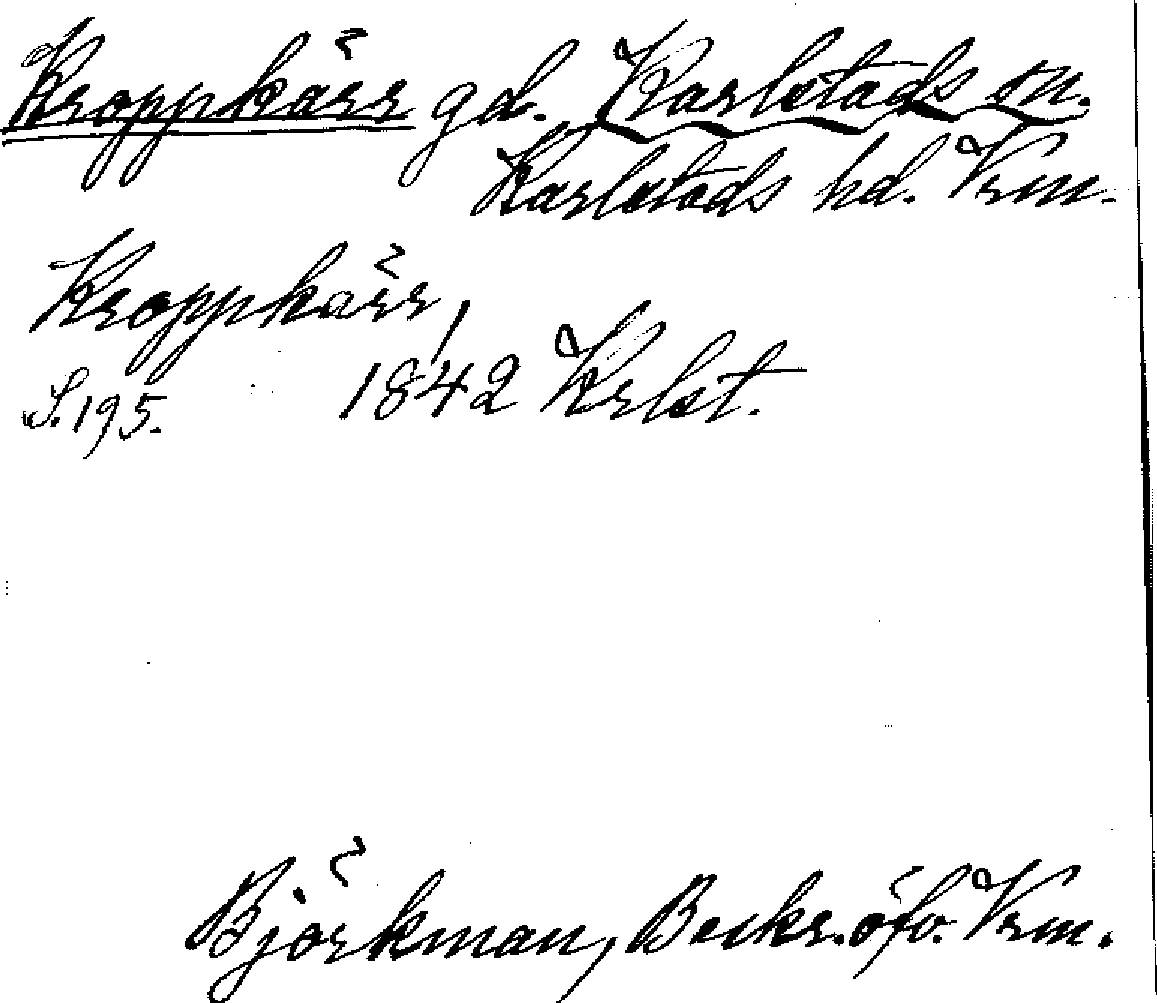 Kroppkärr gd. Karlstads sn.
Karlstads hd. Vrm.
Kroppkärr,
S. 195. 1842 Krlst.
Björkman, Beskr. öfv. Vrm.